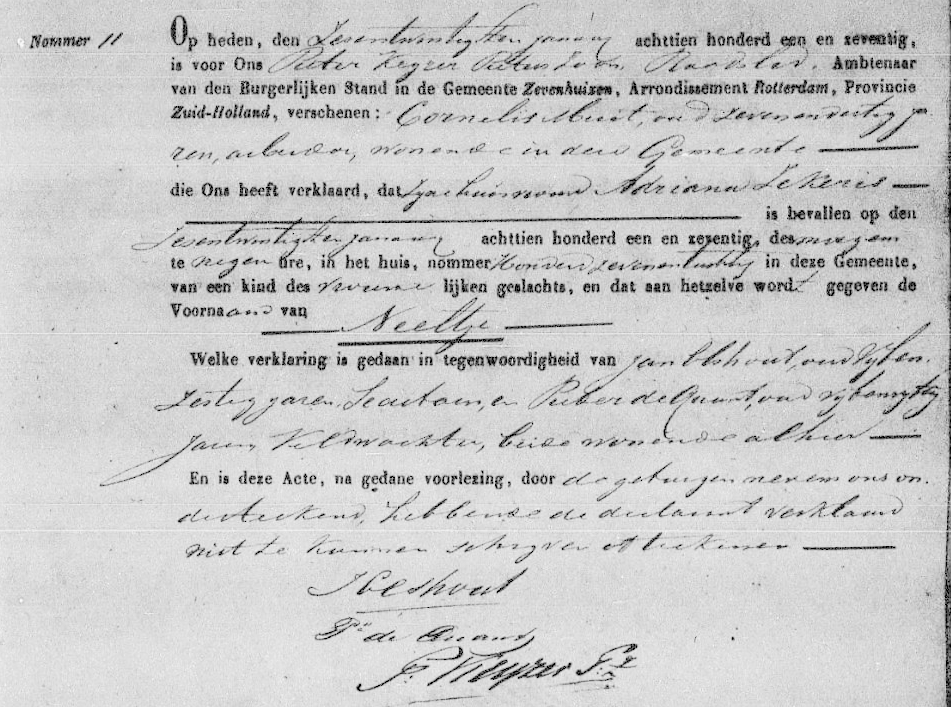 Nommer 11
Op heden, den Zesentwintigsten january achttien honderd een en zeventig,
is voor Ons Pieter Keyzer Pieterszoon Ambtenaar
van den Burgerlijken Stand in de Gemeente Zevenhuizen, Arrondissement Rotterdam, Provincie
Zuid-Holland, verschenen: Cornelis oud zevenendertig ja-
ren, arbeider, wonende in deze Gemeente
die Ons heeft verklaard, dat zyne huisvrouw Adriana
is bevallen op den
Zesentwintigsten january achttien honderd een en zeventig, des morgens
te negen ure, in het huis, nommer Honderd zevenentwintig in deze Gemeente,
van een kind des vrouwe lijken geslachts, en dat aan hetzelve wordt gegeven de
Voornaam van
Neeltje
Welke verklaring is gedaan in tegenwoordigheid van Jan Elshout, oud vyfen
zestig jaren, Secretaris, en Pieter de Quant, oud
jaren, Veldwachter, beide wonende alhier
En is deze Acte, na gedane voorlezing, door de getuigen nevens ons on
derteekend, hebbende de declarant verklaard
niet te kunnen schryven of teekenen
J Elshout
Pr de Quant
P. Keyzer Pz